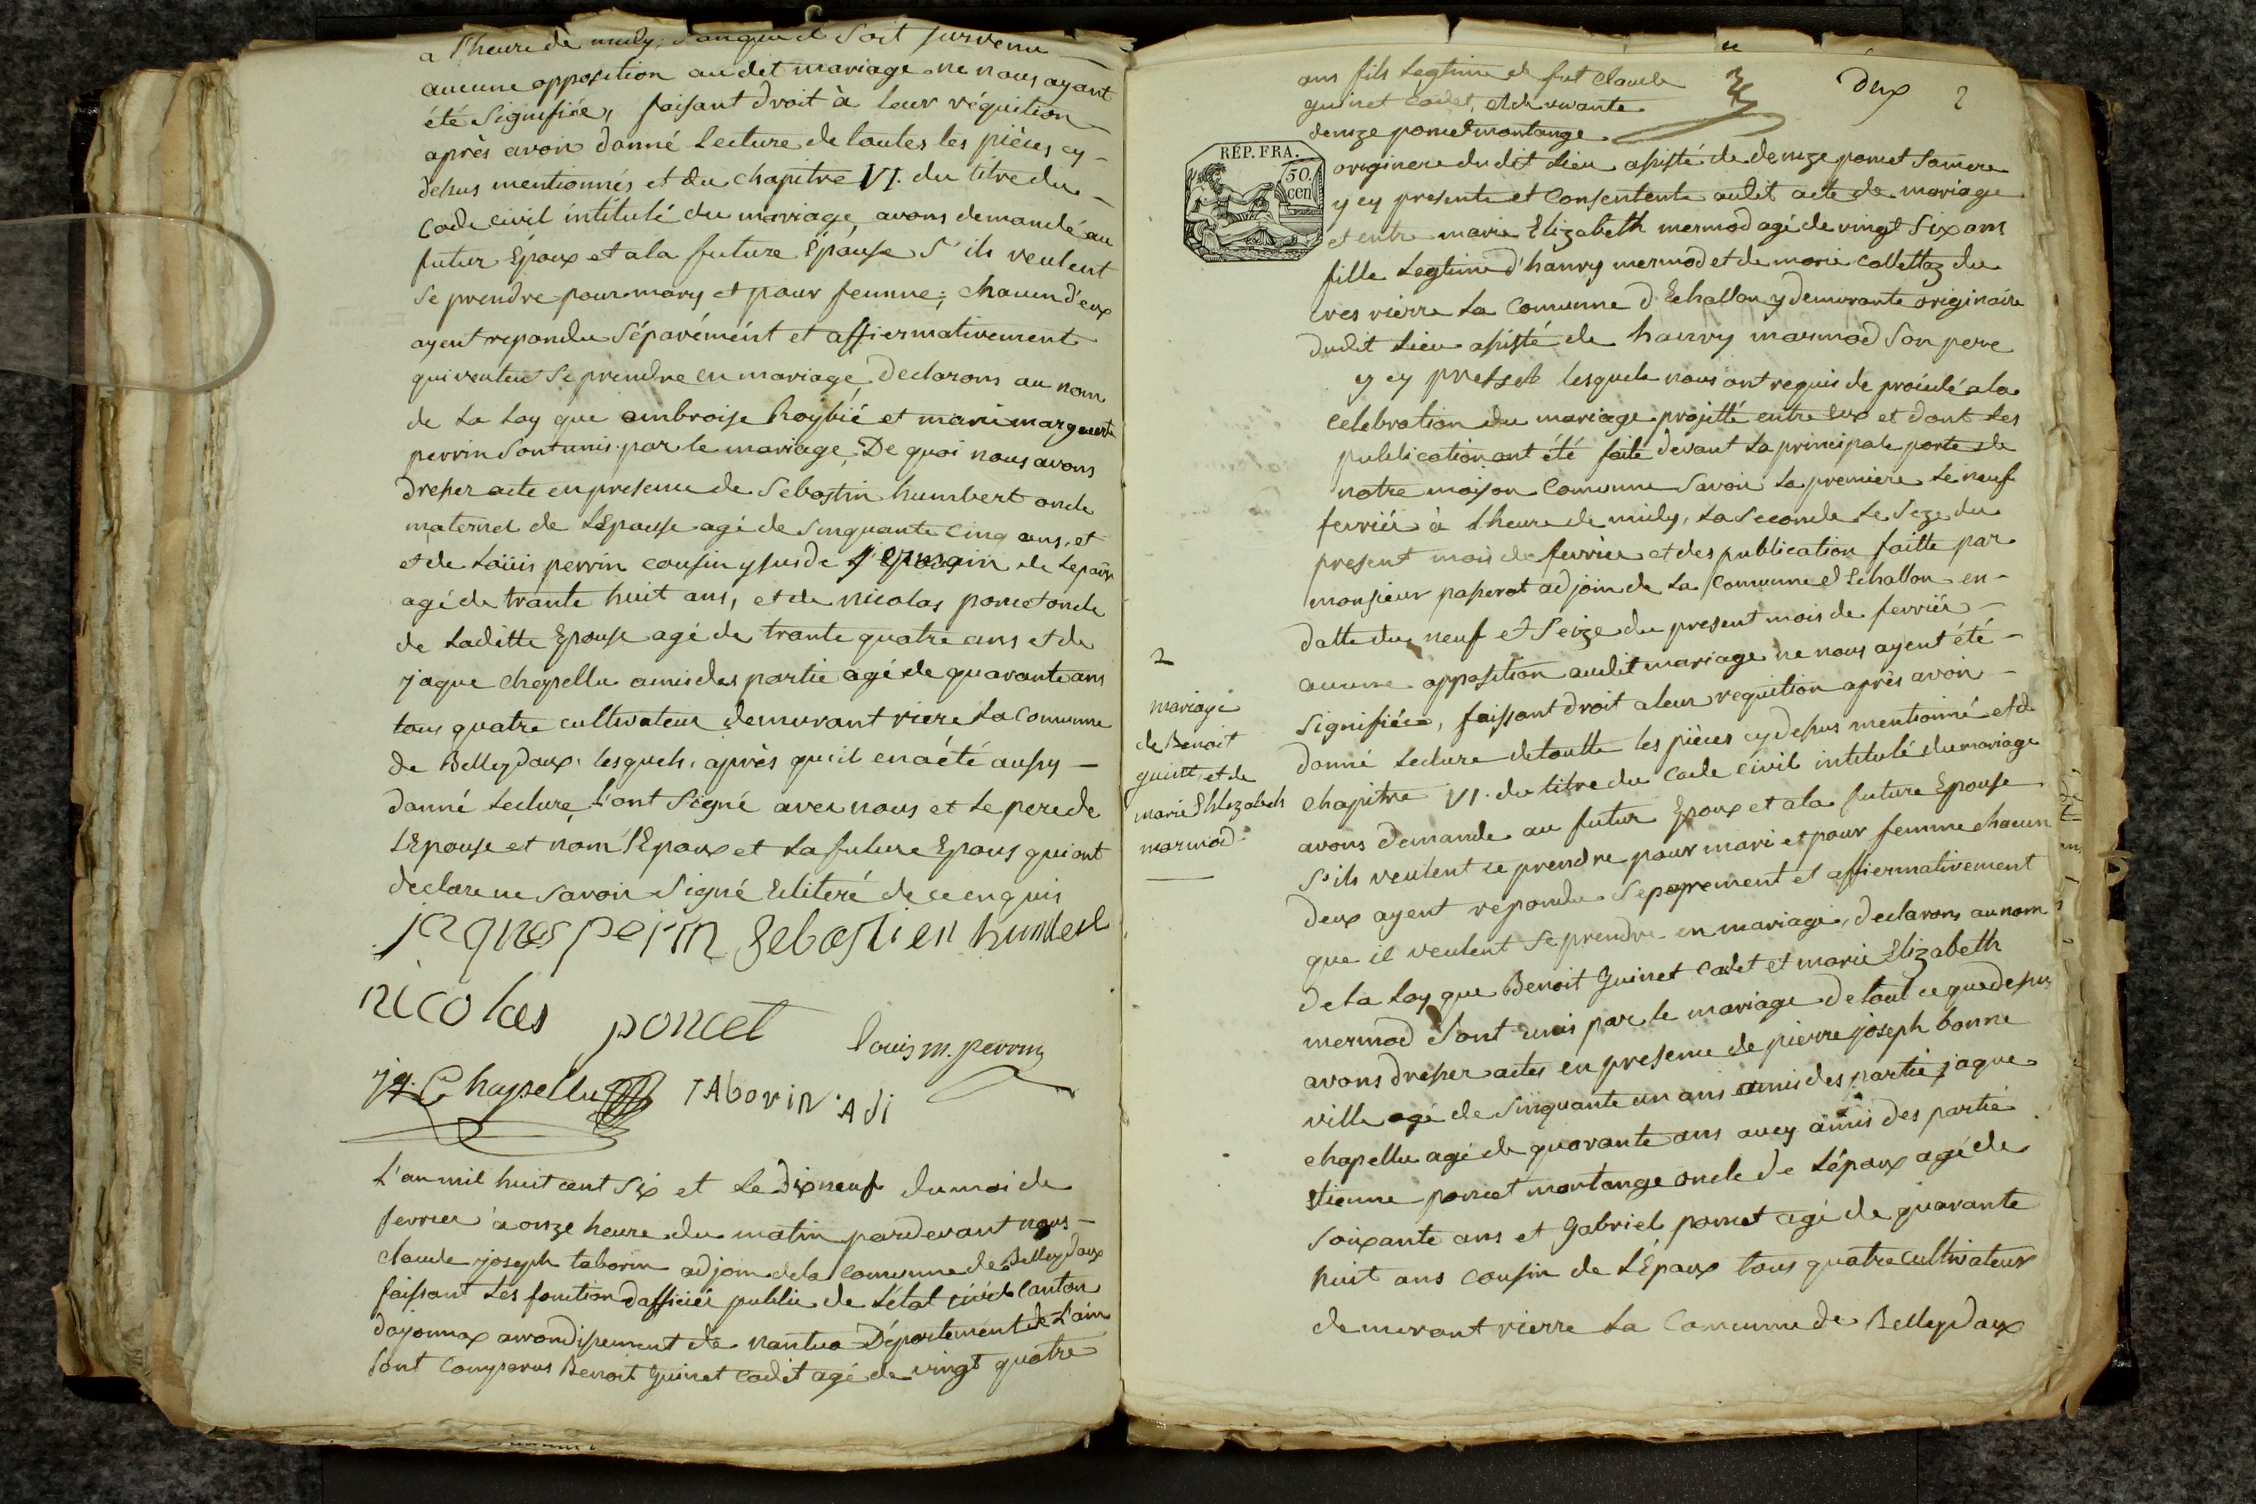 a l'heure de midy, sanque il soit survenu
aucune opposition audet mariage ne nous ayant
été Signifiée, faisant droit à leur réquition
après avoir donné lecture de toutes les pièces cy-
dessus mentionnés et du chapitre VI. du titre du
Code civil intitulé du mariage, avons demandé au
futur Epoux et a la future Epouse S'ils veulent
se prendre pour mary et pour femme; chacun d'eux
ayent repondu Séparémént et affiermativement
qui veulent Se prendre en mariage declarons au nom
de La Loy que ambroise Roybié et marie marguerite
perrin Sont unis par le mariage, De quoi nous avons
dresser acte en presence de Sebastin humbert oncle
maternel de L'Epouse agé de Sinquante Cinq ans, et
et de Loüis perrin cousin
agé de trante huit ans, et de nicolas poncet oncle
de Laditte Epouse agé de trante quatre ans et de
jaque chapellu amis des partie agé de quarante ans
tous quatre cultivateur demurant riere La Comunne
de Belleydoux. lesquels, après qu'il en a été aussy
donné Lecture, L'ont Signé avec nous et Le pere de
L'Epouse et nom l'Epoux et La future Epous qui ont
declare ne Savoir Signé de ce enquis
jaques perin Sebastien humbert
nicolas poncet
Louis m. perrin
jq. Chapellu TAborin Adj
L'an mil huit cent Six et Le dixneuf du moi de
fevrier a onze heure du matin pardevant nous
claude joseph taborin adjoin de la Comunne de Belleydoux
faissant Les fonction d'afficiér public de L'état civil Canton
doyonnax arrondissement de nantua Département de L'ain
Sont Comparus Benoit Guinet Cadet agé de vingt quatre
deux 2
ans fils Legtime de fut Claude
guinet Cadet, et de vivante
denize poncet montange
REP. FRA.
50.
cen
originere dudit Lieu assisté de denize poncet Sa mere
y cy presente et Consentente audit acte de mariage
et entre marie Elizabeth mermod agé de vingt Six ans
fille Legtime d'hanry mermod et de marie Collettaz du
cres rierre La Comunne d'Echallon y demurante originaire
dudit Lieu assisté de hanry marmod Son pere
y cy present lesquels nous ont requis de procédé a la
Celebration du mariage projetté entre Eux et dont Les
publication ont été faite devant La principale porte de
notre maison Comunne Savoir La premiere Le neuf
fevriér à L'heure de midy, La Seconde Le Seze du
present mois de fevrier et des publication faitte par
monsieur passerat adjoin de La Comunne d'Echallon en-
datte du neuf et Seize du present mois de fevriér
aucune opposition audit mariage ne nous ayent été
Signifiée, faissant droit a leur requition après avoir
donné Lecture de toutte les pièces cy dessus mentionné et du
chapitre VI. du titre du Code civil intitulé du mariage
avons demande au futur Epoux et a la future Epouse
S'ils veulent ce prendre pour mari et pour femme chacun
deux ayent repondu Séparement et affiermativement
que il veulent Se prendre en mariage, declarons au nom
de la Loy que Benoit Guinet Cadet et marie Elizabeth
mermod Sont unis par le mariage de tout ce que dessus
avons dresser actes en presence de pierre joseph bonne
ville agé de Sinquante un ans amis des partie, jaque
chapellu agé de quarante ans aucy amis des partie
Etienne poncet montange oncle de L'épaux agé de
Soixante ans et Gabriel poncet agé de quarante
huit ans Cousin de L'Epaux tous quatre Cultivateur
demurant rierre La Comunne de Belleydoux
2
mariage
de Benoit
guinet et de
marie Ehlizabeh
marmod